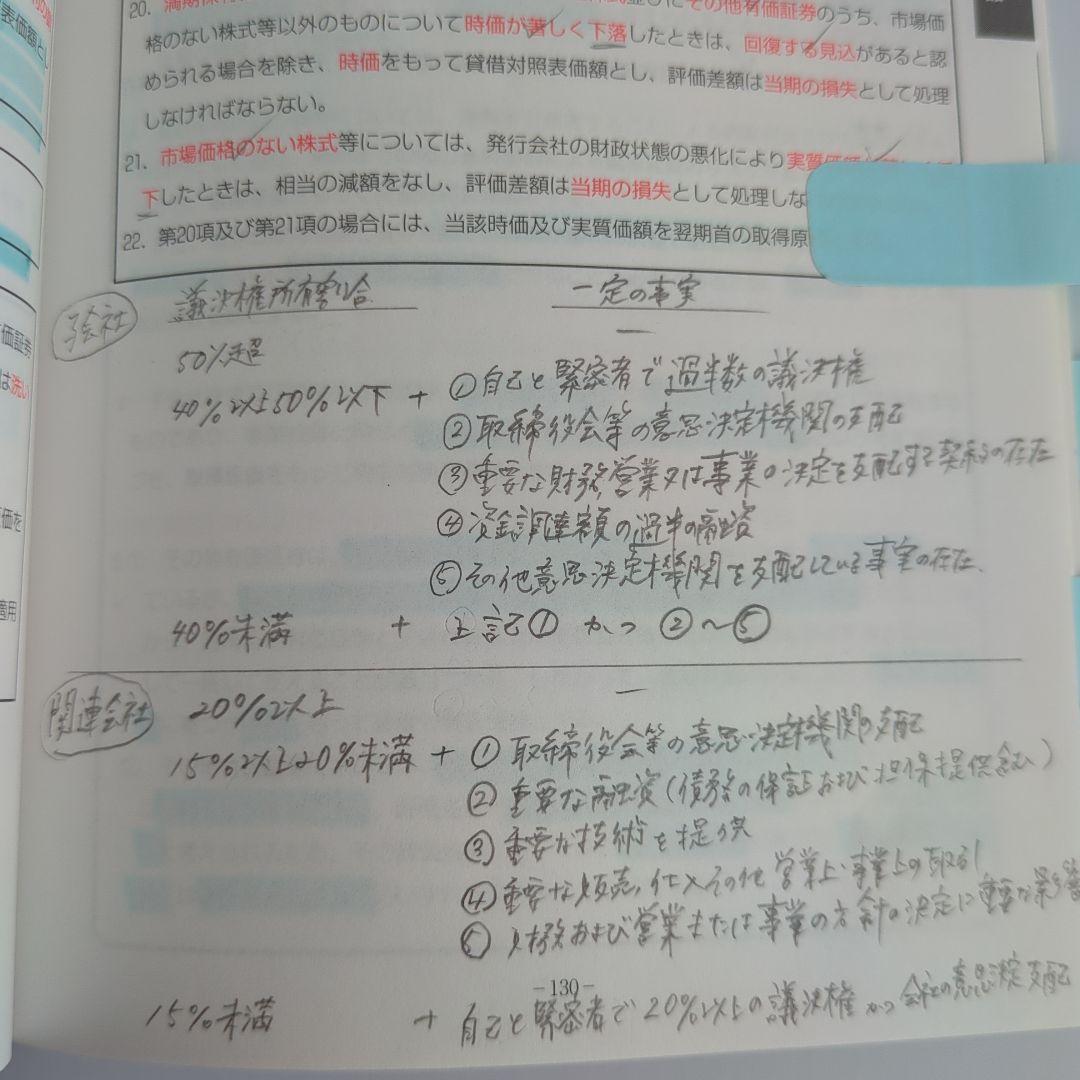 20. 満期保有
その他有価証券のうち、市場価
格のない株式等以外のものについて時価が著しく下落したときは、回復する見込があると認
められる場合を除き、時価をもって貸借対照表価額とし、評価差額は当期の損失として処理
しなければならない。
21. 市場価格のない株式等については、発行会社の財政状態の悪化により実質価
下したときは、相当の減額をなし、評価差額は当期の損失として処理しな
22. 第20項及び第21項の場合には、当該時価及び実質価額を翌期首の取得原
議決権所有割合 一定の事実
子会社
50%超 ー
40%以上50%以下 + ①自己と緊密者で過半数の議決権
②取締役会等の意思決定機関の支配
③重要な財務,営業又は事業の決定を支配する契約の存在
④資金調達額の過半の融資
⑤その他意思決定機関を支配している事実の存在.
40%未満 + 上記① かつ ②〜⑤
関連会社
20%以上 ー
15%以上20%未満 + ①取締役会等の意思決定機関の支配
②重要な融資(債務の保証および担保提供含む)
③重要な技術を提供
④重要な販売,仕入その他営業上・事業上の取引
⑤財務および営業または事業の方針の決定に重要な影響
-130-
15%未満 + 自己と緊密者で20%以上の議決権 かつ 会社の意思決定支配
表価額とし
価証券
は洗い
価を
適用